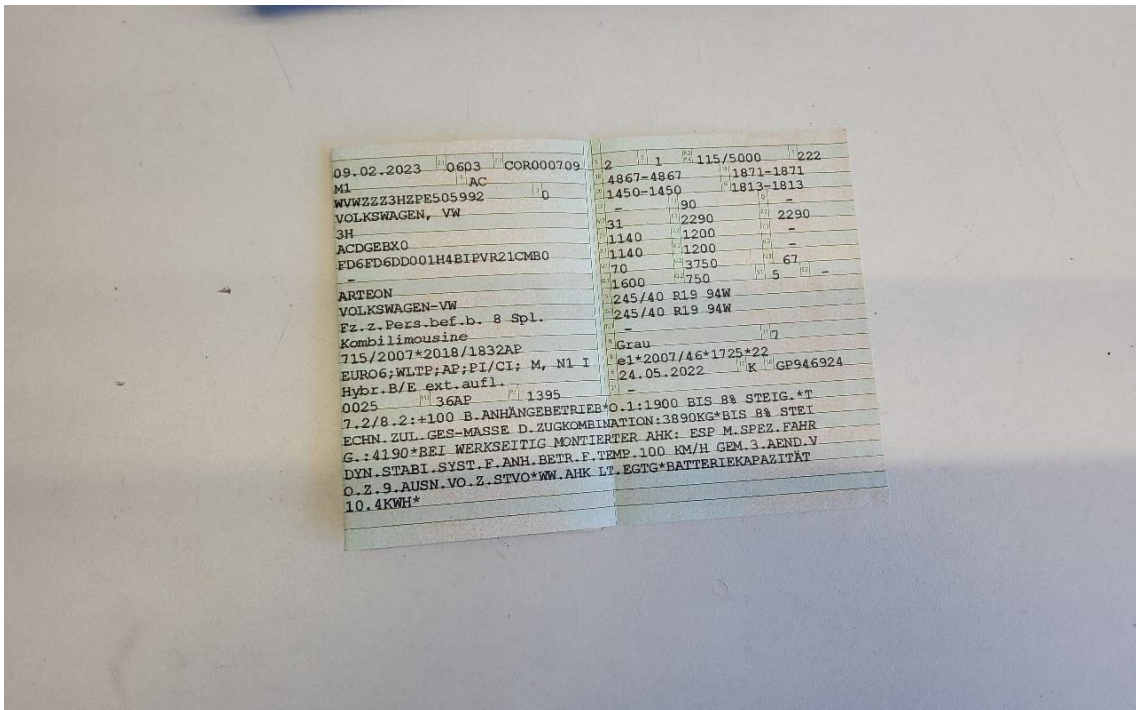 09.02.2023 0603 COR000709
M1 AC
WVWZZZ3HZPE505992 0
VOLKSWAGEN, VW
3H
ACDGEBX0
FD6FD6DD001H4BIPVR21CMB0
-
ARTEON
VOLKSWAGEN-VW
Fz.z.Pers.bef.b. 8 Spl.
Kombilimousine
715/2007*2018/1832AP
EURO6;WLTP;AP;PI/CI; M, N1 I
Hybr.B/E ext.aufl.
0025 36AP 1395
2 1 115/5000 222
4867-4867 1871-1871
1450-1450 1813-1813
- 90 -
31 2290 2290
1140 1200 -
1140 1200 -
70 3750 67
1600 750 5 -
245/40 R19 94W
245/40 R19 94W
-
Grau 7
e1*2007/46*1725*22
24.05.2022 K GP946924
-
7.2/8.2:+100 B.ANHÄNGEBETRIEB*O.1:1900 BIS 8% STEIG.*T
ECHN.ZUL.GES-MASSE D.ZUGKOMBINATION:3890KG*BIS 8% STEI
G.:4190*BEI WERKSEITIG MONTIERTER AHK: ESP M.SPEZ.FAHR
DYN.STABI.SYST.F.ANH.BETR.F.TEMP.100 KM/H GEM.3.AEND.V
O.Z.9.AUSN.VO.Z.STVO*WW.AHK LT.EGTG*BATTERIEKAPAZITÄT
10.4KWH*